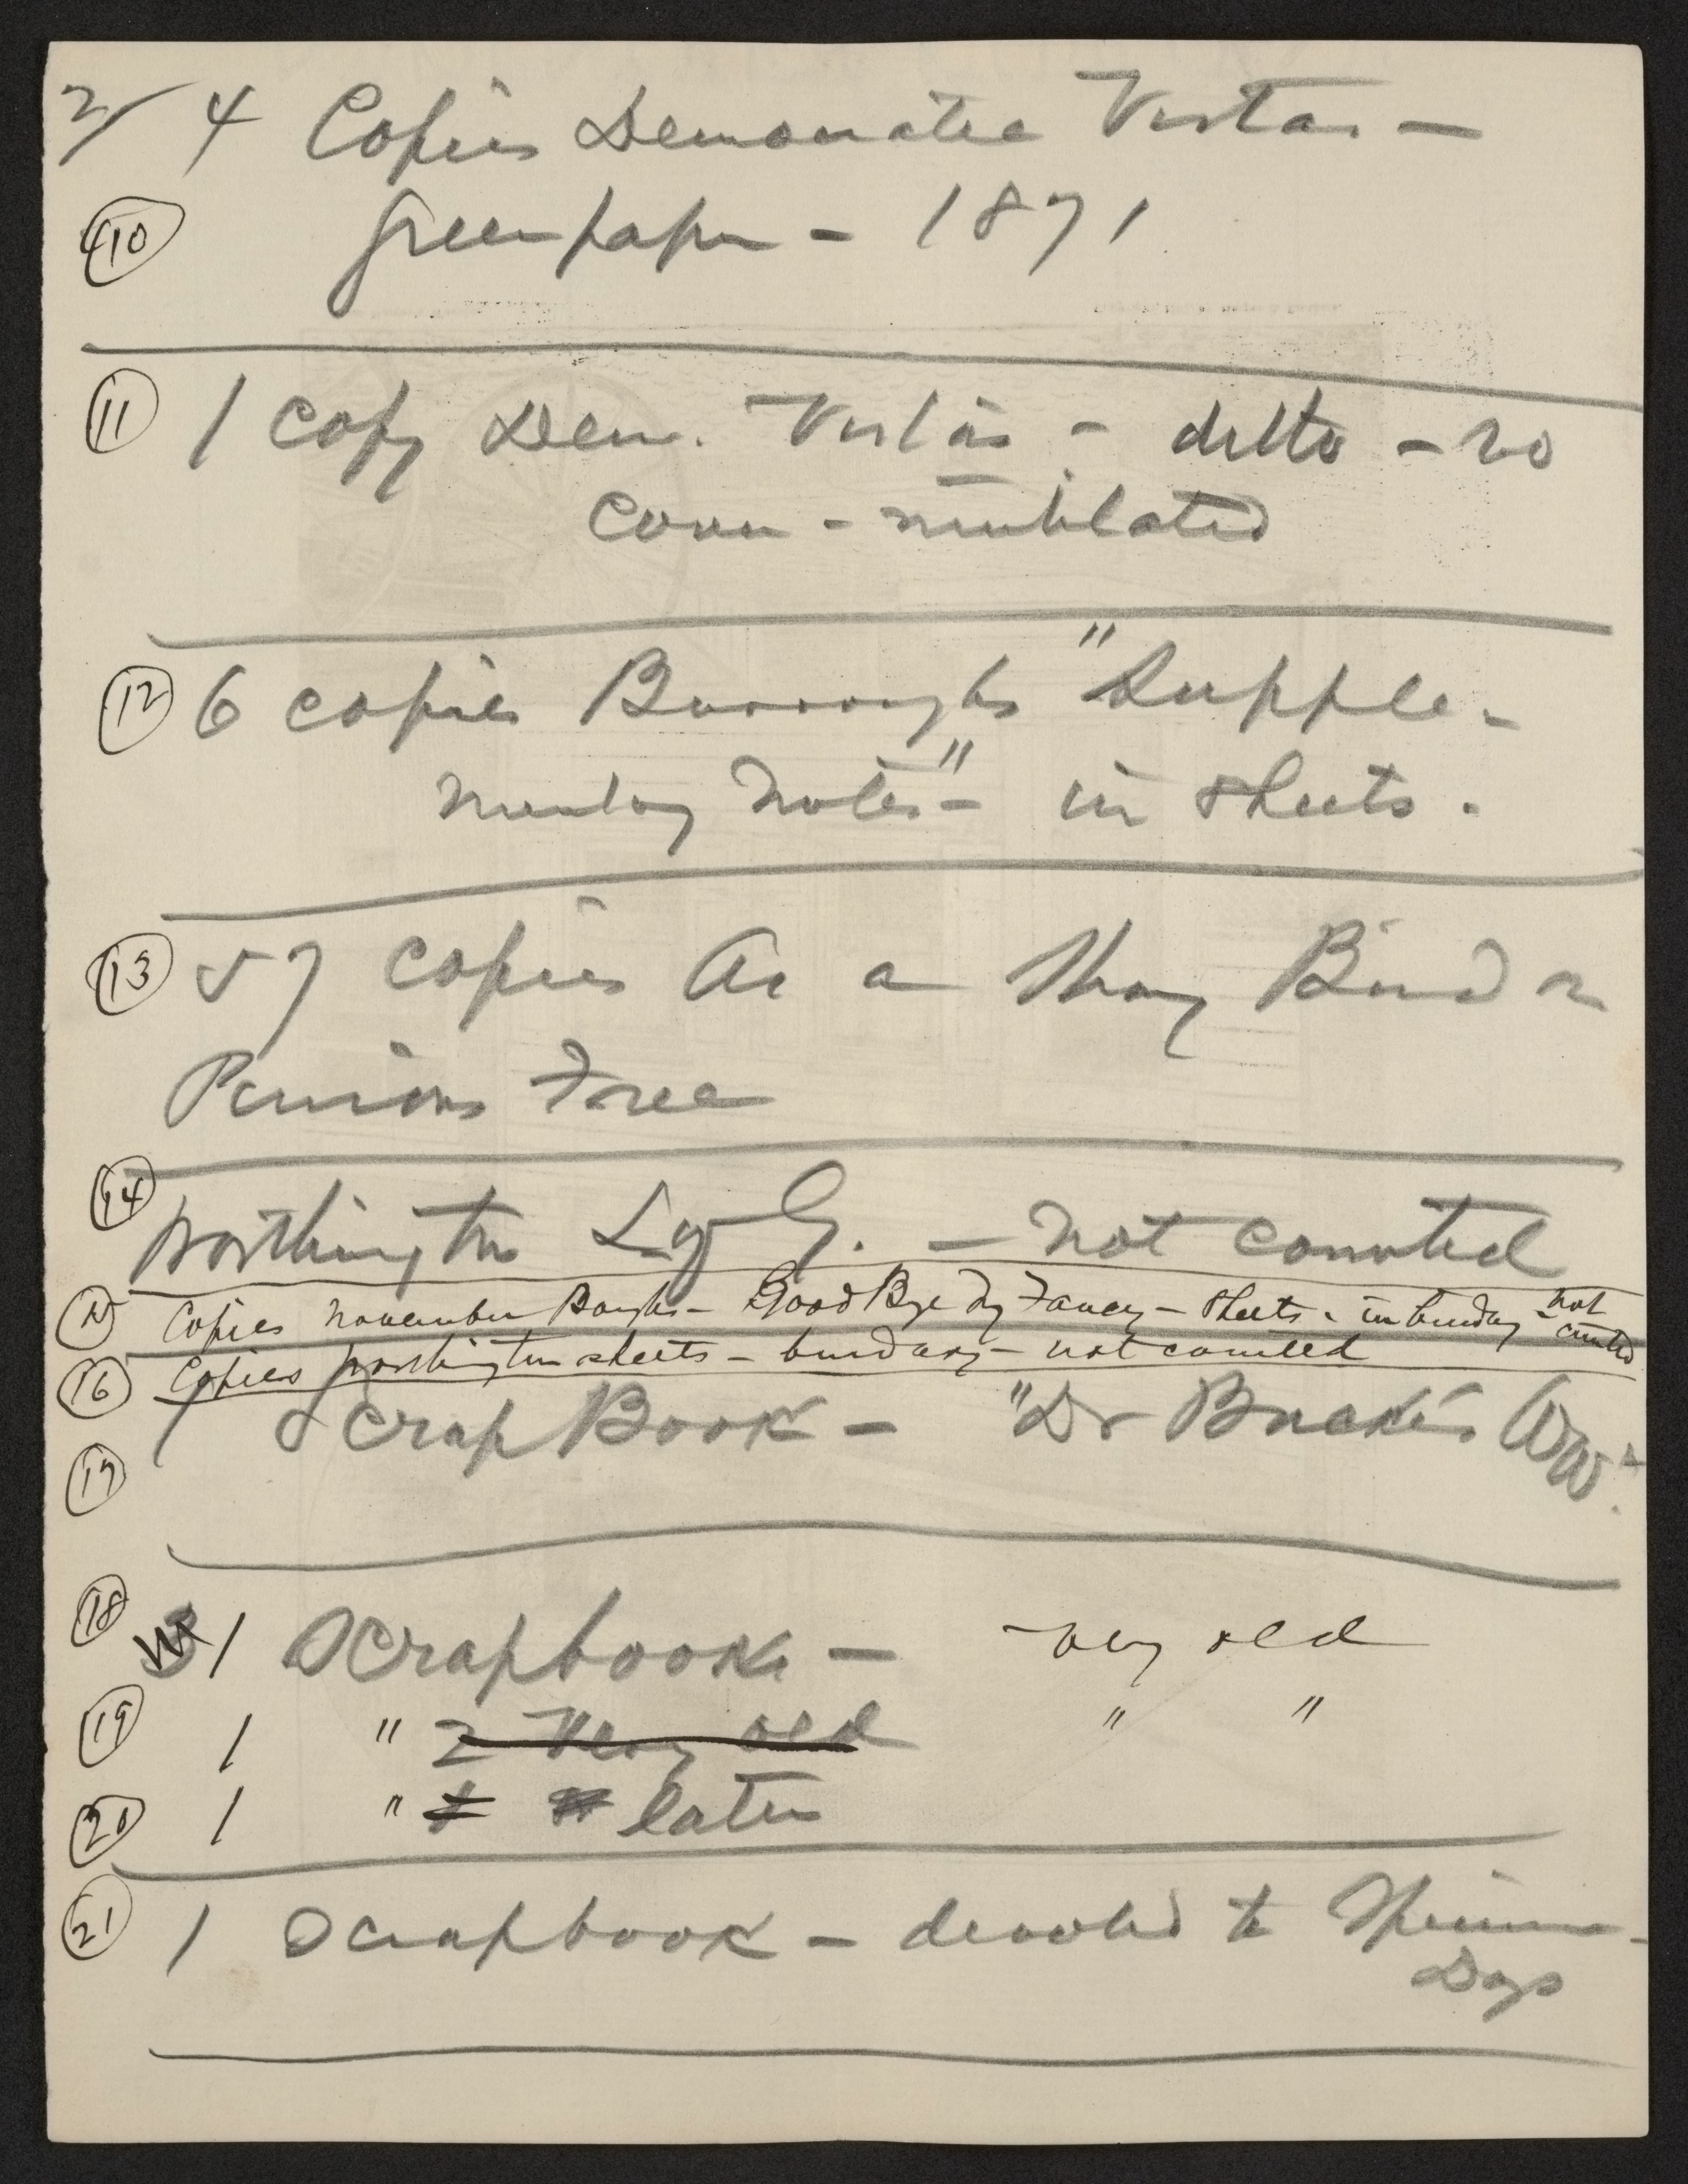 2/ 4 Copies Democratic Vistas —
(10) green paper – 1871
(11) 1 copy Dem. Vistas – ditto – no
cover – mutilated
(12) 6 copies Burroughs "Supple-
mentary Notes" – in sheets.
(13) 57 copies As a Strong Bird on
Pinions Free
(14) Worthington L of G. — not counted
Copies November Boughs – Good Bye My Fancy – sheets – in bindery – not
counted
(16) Copies Worthington sheets – bindery – not counted
1 Scrap Book – "Dr Bucke's WW."
(17)
(18) 3 1 Scrapbooks — very old
(19) 1 " 2 Very old " "
(20) 1 " 1 " later
(21) 1 Scrapbook – devoted to Specimen
Days